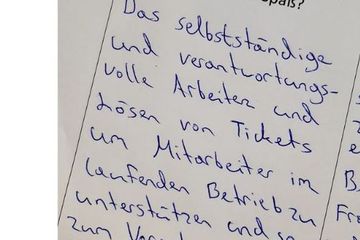 Spaß?
Das selbstständige
und verantwortungs-
volle Arbeiten und
Lösen von Tickets
um Mitarbeiter im
laufenden Betrieb zu
unterstützen und so
zum